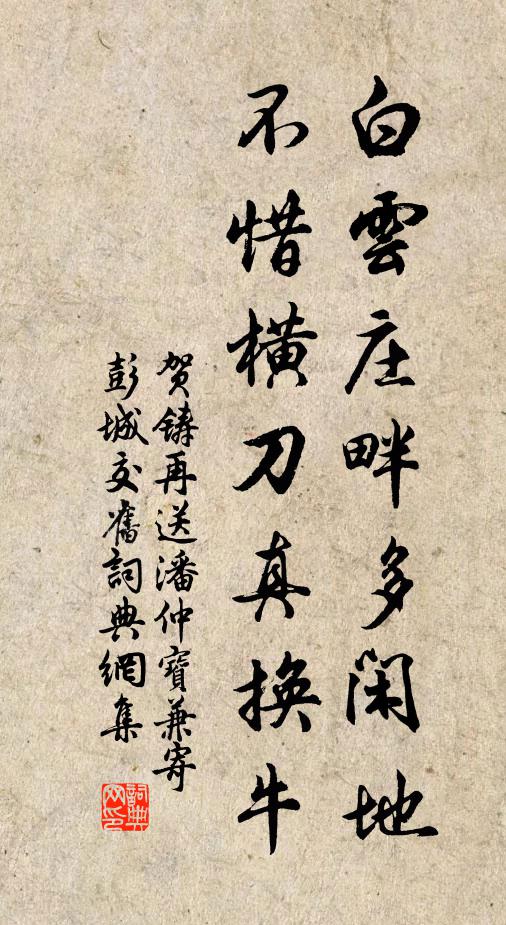 白雲庄畔多閑地
不惜橫刀真換牛
賀鑄再送潘仲寶兼寄
彭城交舊詞典網集
詞典
网印